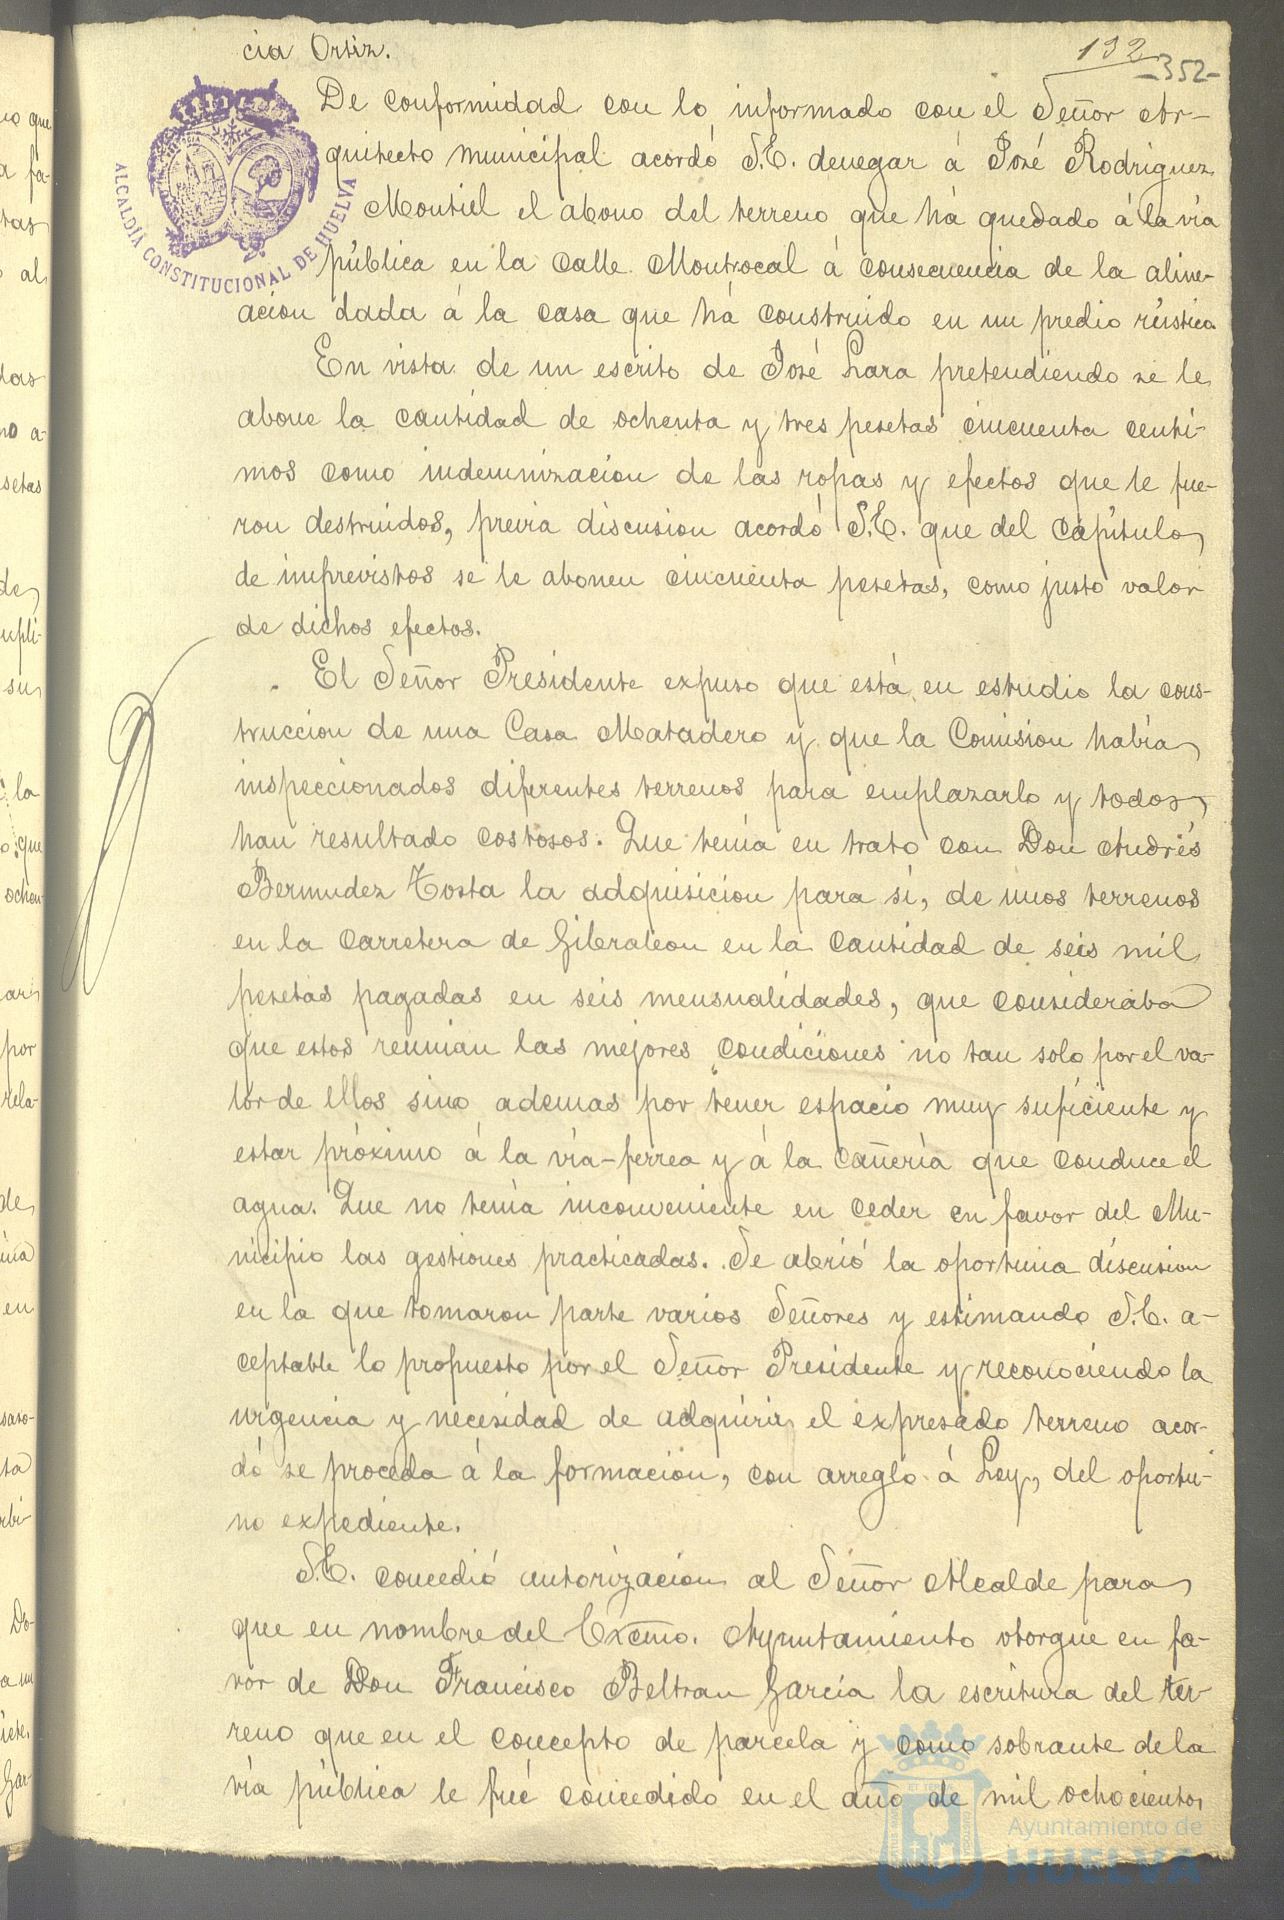 cia Ortiz.
132
-352-
De conformidad con lo informado con el Señor Ar-
quitecto municipal acordó S.E. denegar á José Rodriguez
Montiel el abono del terreno que há quedado á la via
pública en la calle Montrocal á consecuencia de la aline-
ación dada á la casa que há construido en un predio rústico.
En vista de un escrito de José Lara pretendiendo se le
abone la cantidad de ochenta y tres pesetas cincuenta centi-
mos como indemnizacion de las ropas y efectos que le fue-
ron destruidos, previa discusion acordó S.E. que del capítulo
de imprevistos se le abonen cincuenta pesetas, como justo valor
de dichos efectos.
El Señor Presidente expuso que está en estudio la cons-
truccion de una Casa Matadero y que la Comision habia
inspeccionados diferentes terrenos para emplazarlo y todos
han resultado costosos. Que tenia en trato con Don Andrés
Bermudez Tosta la adquisicion para si, de unos terrenos
en la carretera de Gibraleon en la cantidad de seis mil
pesetas pagadas en seis mensualidades, que consideraba
que estos reunian las mejores condiciones no tan solo por el va-
lor de ellos sino ademas por tener espacio muy suficiente y
estar próximo á la via-ferrea y á la cañeria que conduce el
agua. Que no tenia inconveniente en ceder en favor del Mu-
nicipio las gestiones practicadas. Se abrió la oportuna discusion
en la que tomaron parte varios Señores y estimando S.E. a-
ceptable lo propuesto por el Señor Presidente y reconociendo la
urgencia y necesidad de adquirir el expresado terreno acor-
dó se proceda á la formacion, con arreglo á Ley, del oportu-
no expediente.
S.E. concedió autorizacion al Señor Alcalde para
que en nombre del Excmo. Ayuntamiento otorgue en fa-
vor de Don Francisco Beltran Garcia la escritura del ter-
reno que en el concepto de parcela y como sobrante de la
via pública le fué concedido en el año de mil ochocientos
ALCALDIA CONSTITUCIONAL DE HUELVA
Ayuntamiento de
HUELVA